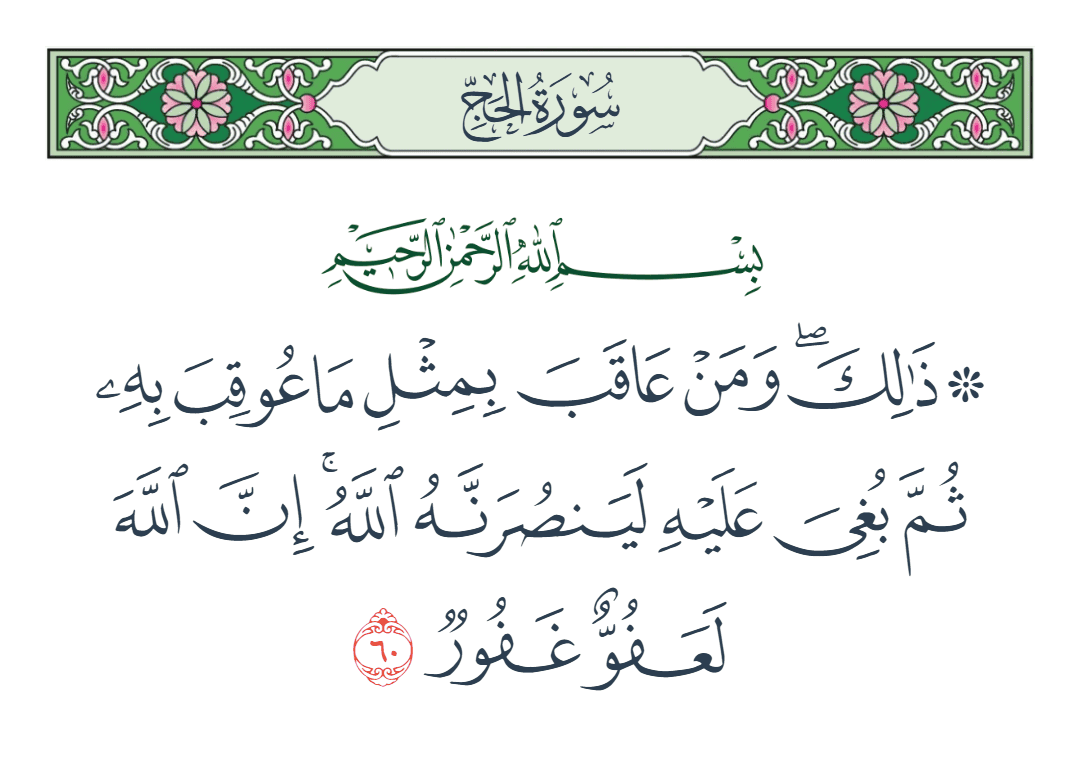 سُورَةُ الحَجِّ
بِسْمِ ٱللَّهِ ٱلرَّحْمَٰنِ ٱلرَّحِيمِ
۞ ذَٰلِكَۖ وَمَنْ عَاقَبَ بِمِثْلِ مَا عُوقِبَ بِهِۦ
ثُمَّ بُغِىَ عَلَيْهِ لَيَنصُرَنَّهُ ٱللَّهُۚ إِنَّ ٱللَّهَ
لَعَفُوٌّ غَفُورٌ ٦٠